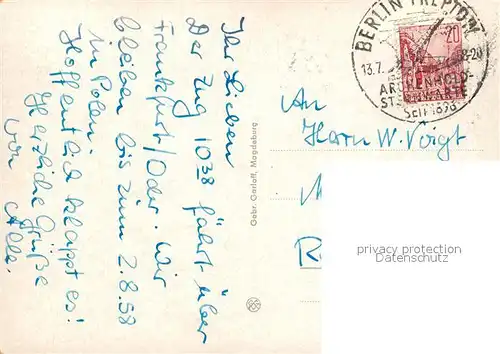 Ihr Lieben
Der Zug 10³⁸ fährt über
Frankfurt/Oder. Wir
bleiben bis zum 2.8.58
in Polen.
Hoffentlich klappt es!
Herzliche Grüße
von Alle.
Gebr. Garloff, Magdeburg
BERLIN TREPTOW
13.7.
-20
20
ARCHENHOLD-
STERNWARTE
SEIT 1896
An
Herrn W. Voigt
privacy protection
Datenschutz